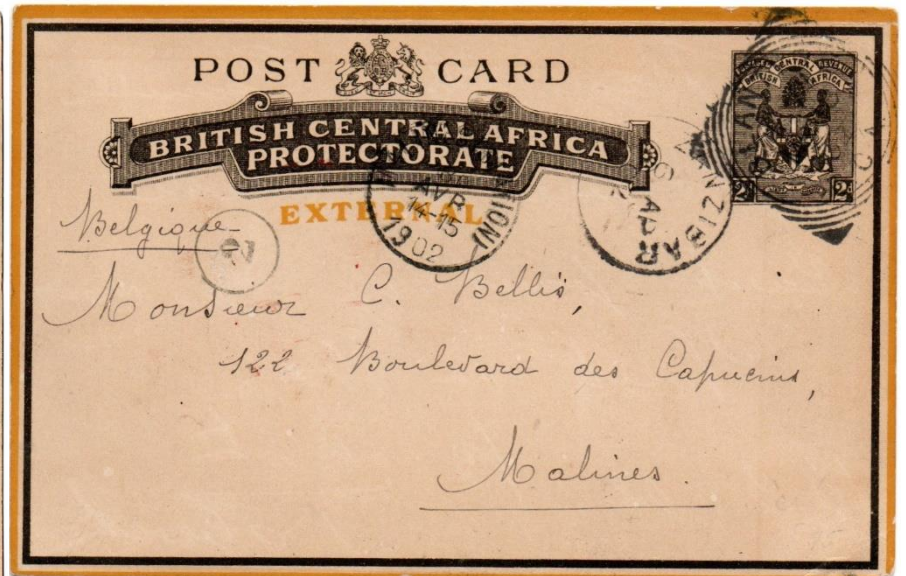 POST CARD
BRITISH CENTRAL AFRICA
PROTECTORATE
EXTERNAL
BRITISH CENTRAL AFRICA
2d 2d
ZANZIBAR
AP
AVR
14-15
1902
Belgique
Monsieur C. Bellis,
122 Boulevard des Capucins,
Malines.